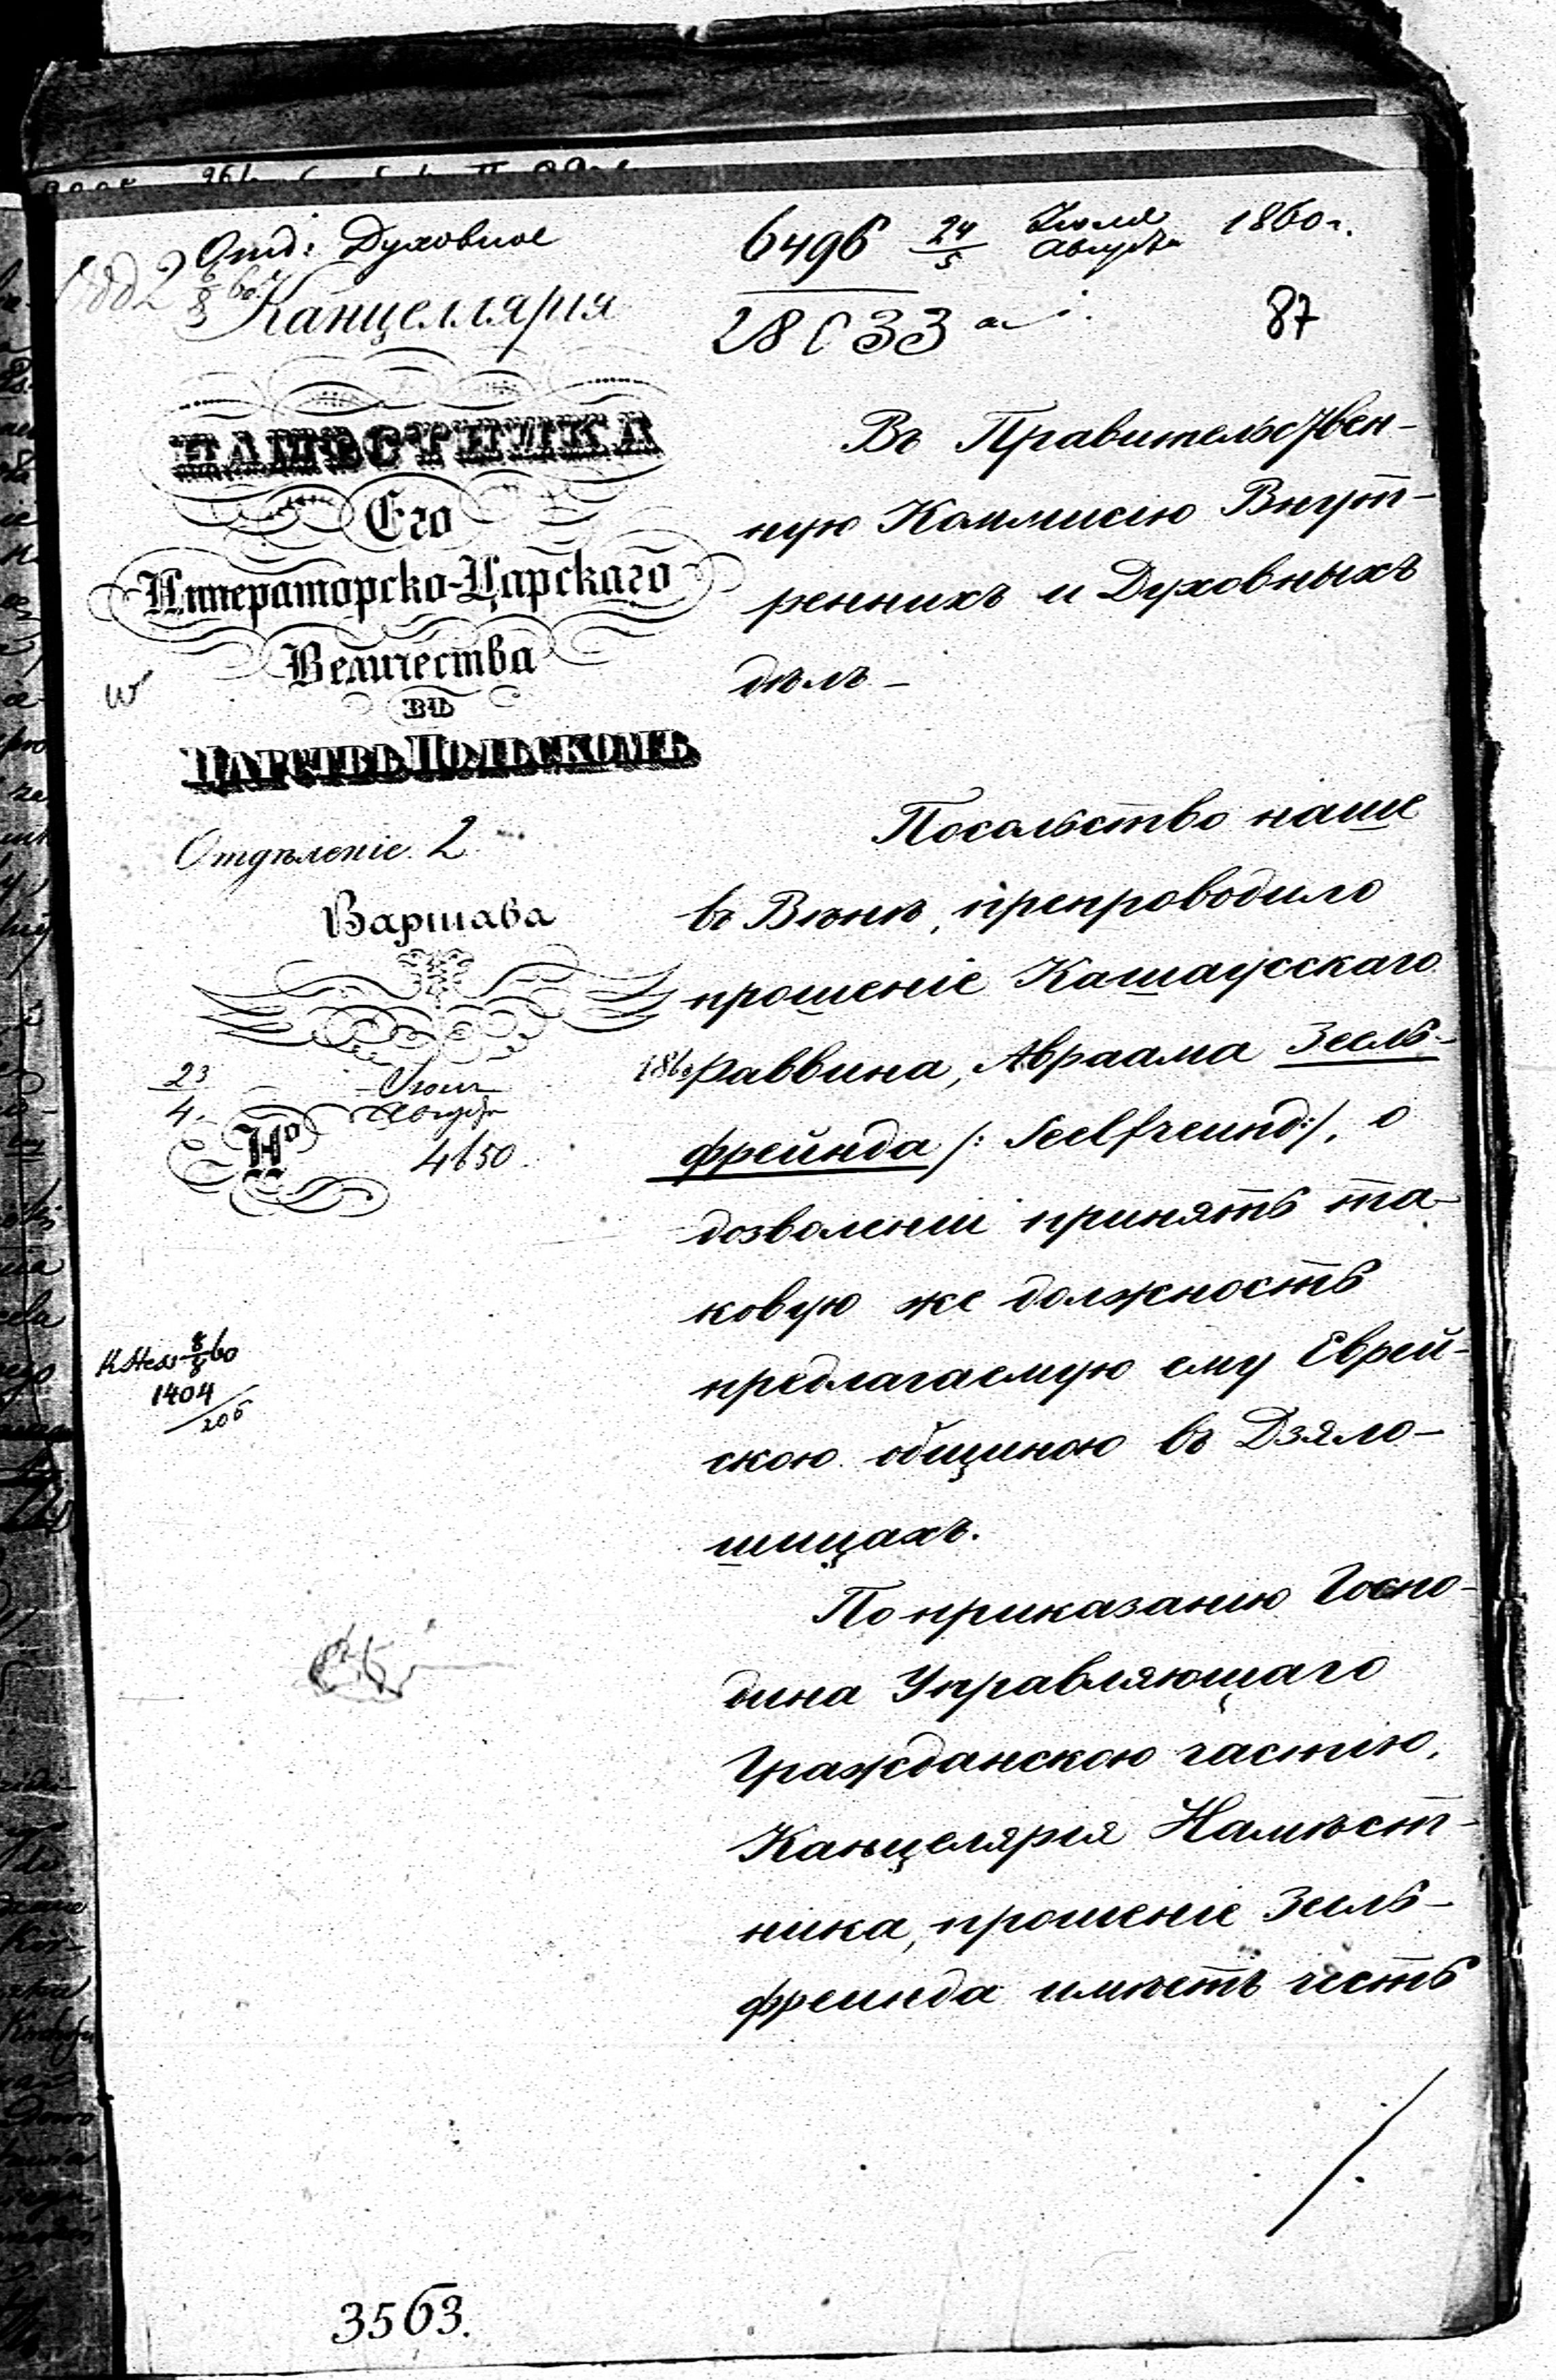 Отд: Духовное
6496 24/5 Іюля Августа 1860 г.
Канцеллярія
28633
87
НАМѢСТНИКА
Его
Императорско-Царскаго
Величества
ВЪ
ЦАРСТВѢ ПОЛЬСКОМЪ
Отдѣленіе 2
Варшава
23/4 Іюля Августа 1860
№ 4650
1404
206
Въ Правительствен-
ную Коммисію Внут-
реннихъ и Духовныхъ
дѣлъ –
Посольство наше
въ Вѣнѣ, препроводило
прошеніе Кашаусскаго
раввина, Авраама Зеель-
фрейнда /: Seelfreund :/, о
дозволеніи принять та-
ковую же должность
предлагаемую ему Еврей-
скою общиною въ Дзяло-
шицахъ.
По приказанію Госпо-
дина Управляющаго
Гражданскою частію,
Канцелярія Намѣст-
ника, прошеніе Зель-
фреинда имѣетъ честь
3563.